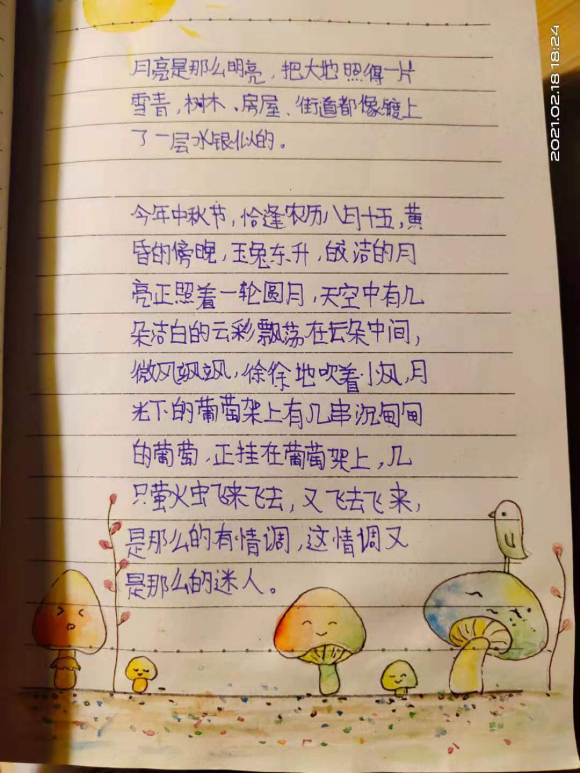 2021.02.18 18:24
月亮是那么明亮，把大地照得一片
雪青，树木、房屋、街道都像镀上
了一层水银似的。
今年中秋节，恰逢农历八月十五，黄
昏的傍晚，玉兔东升，皎洁的月
亮正照着一轮圆月，天空中有几
朵洁白的云彩飘荡在云朵中间，
微风飒飒，徐徐地吹着小风，月
光下的葡萄架上有几串沉甸甸
的葡萄，正挂在葡萄架上，几
只萤火虫飞来飞去，又飞去飞来，
是那么的有情调，这情调又
是那么的迷人。